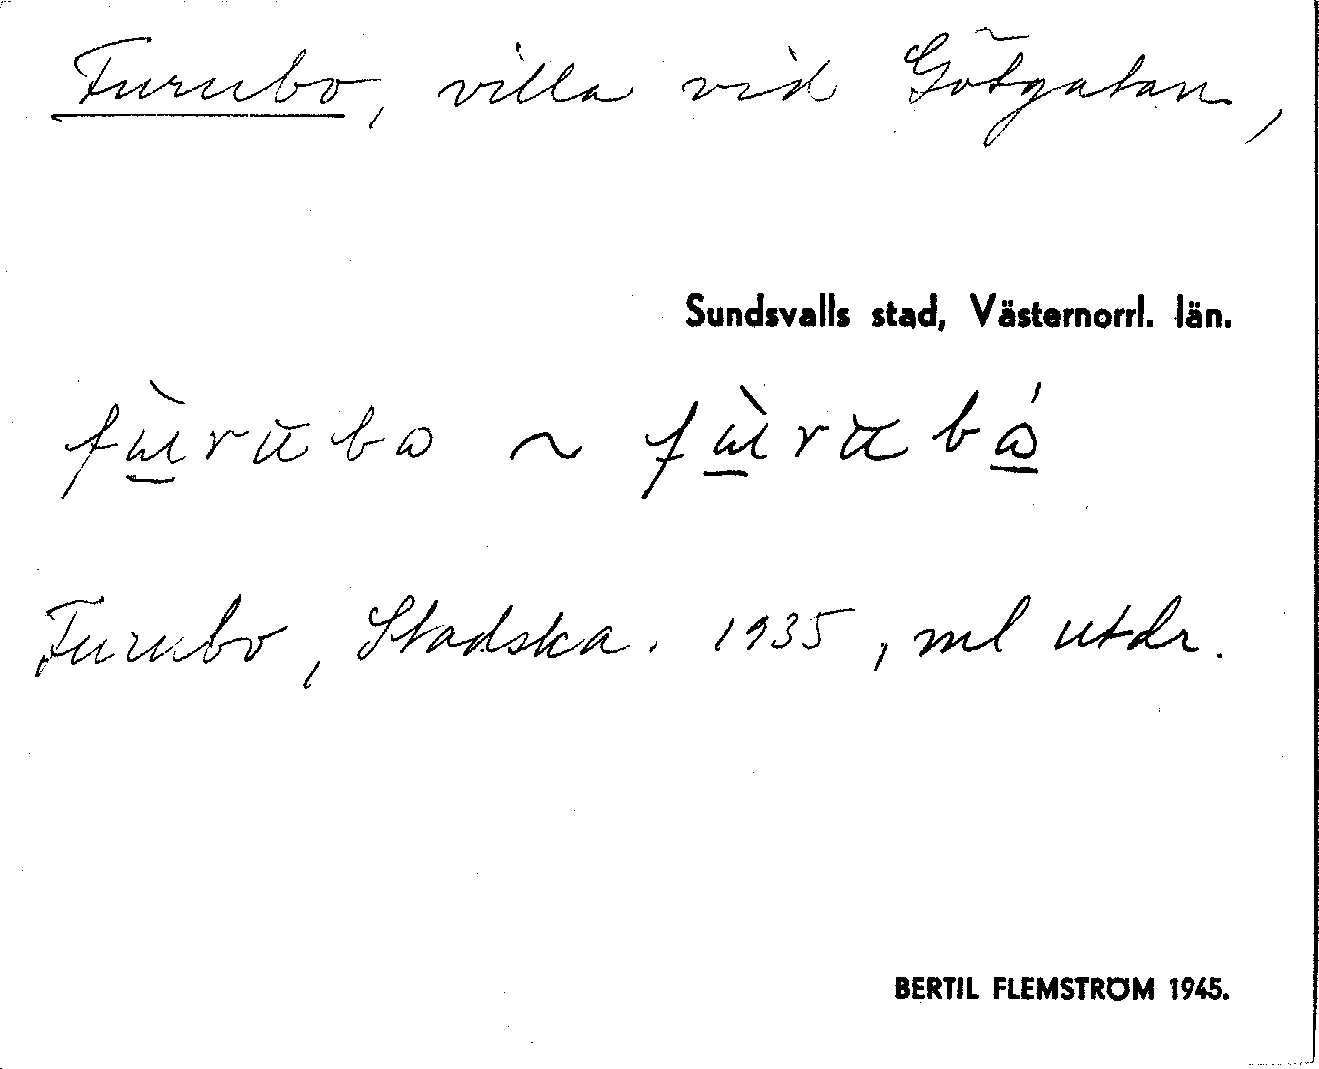 Furubo, villa vid Götgatan,
Sundsvalls stad, Västernorrl. län.
fù̲rubo ~ fù̲rubó̲
Furubo, Stadska. 1935, ml utdr.
BERTIL FLEMSTRÖM 1945.